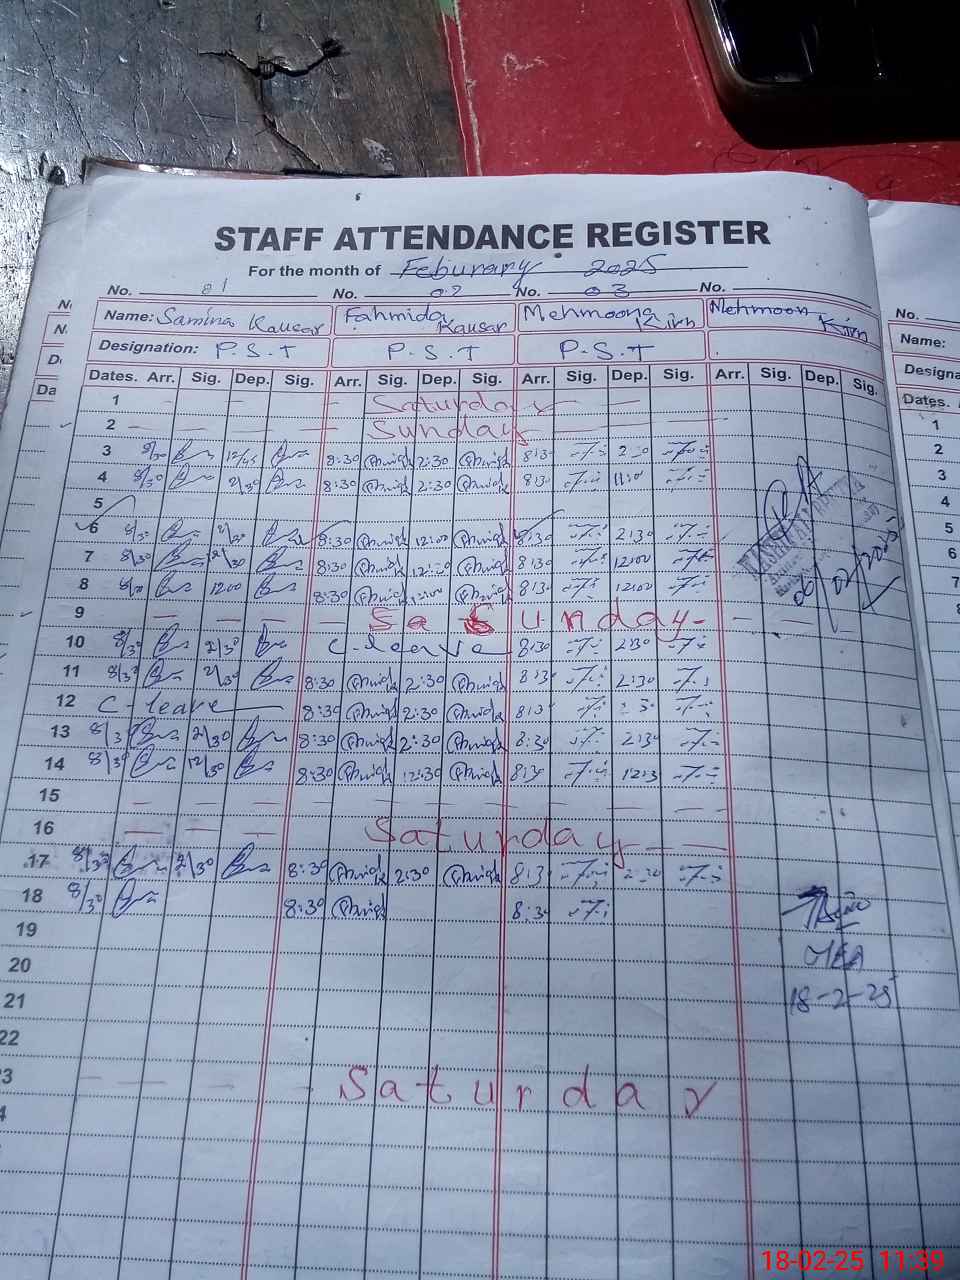 STAFF ATTENDANCE REGISTER
For the month of Feburary 2025
No. 01 No. 02 No. 03 No.
Name: Samina Kausar Fahmida Kausar Mehmoona Kirn Mehmoon Kirn
Designation: P.S.T P.S.T P.S.T
Dates. Arr. Sig. Dep. Sig. Arr. Sig. Dep. Sig. Arr. Sig. Dep. Sig. Arr. Sig. Dep. Sig.
1 Saturday
2 Sunday
3 8/30 12/45 8:30 2:30 8:30 2:30
4 8/30 2/30 8:30 2:30 8:30 11:00
5
6 8/30 2/30 8:30 12:00 8:30 2:30
7 8/30 12/30 8:30 12:30 8:30 12:00
8 8/30 12:00 8:30 12:00 8:30 12:00
9 Sunday
10 8/30 2/30 C-leave 8:30 2:30
11 8/30 2/30 8:30 2:30 8:30 2:30
12 C-leave 8:30 2:30 8:30 2:30
13 8/30 2/30 8:30 2:30 8:30 2:30
14 8/30 12/30 8:30 12:30 8:30 12:30
15
16 Saturday
17 8/30 2/30 8:30 2:30 8:30 2:30
18 8/30 8:30 8:30
19
20
21
22
3 Saturday
4
06/02/2025
MEA
18-2-25
No.
Name:
Designa
Dates.
1
2
3
4
5
6
7
18-02-25 11:39